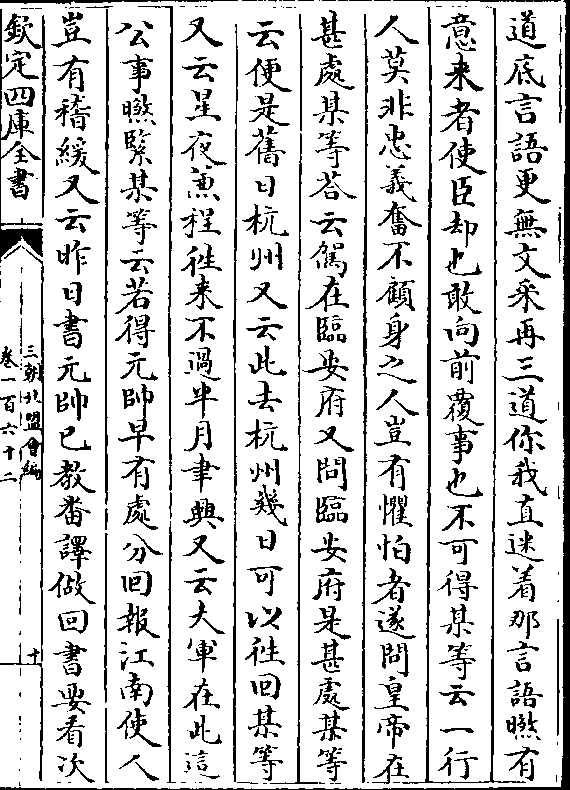 道底言語更無文采再三道你我直述着那言語㬠有
意来者使臣却也敢向前覆事也不可得某等云一行
人莫非忠義奮不顧身之人豈有懼怕者遂問皇帝在
甚處某等荅云駕在臨安府又問臨安府是甚處某等
云便是舊日杭州又云此去杭州幾日可以徃回某等
又云星夜兼程徃来不過半月聿興又云大軍在此這
公事㬠緊某等云若得元帥早有處分回報江南使人
豈有稽緩又云昨日書元帥已教畨譯做回書要看次
欽定四庫全書
三朝北盟會編
卷一百六十二
十